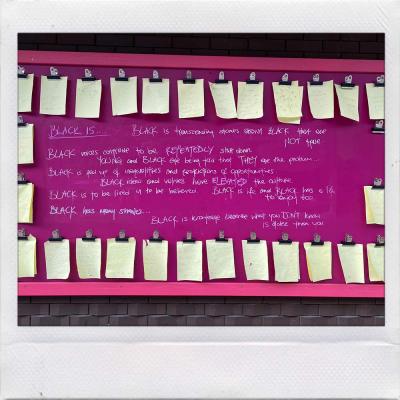 BLACK IS.... BLACK is transcending stories about BLACK that are
NOT true
BLACK voices continue to be REPEATEDLY shut down.
YOUNG and BLACK are being told that THEY are the problem...
BLACK is full of inequalities and of opportunities
BLACK ideas and values have ELEVATED the culture
BLACK is to be lived is to be believed. BLACK is life and BLACK has a life
to enjoy too.
BLACK has many shades...
BLACK is knowledge because what you DON'T know
is than you